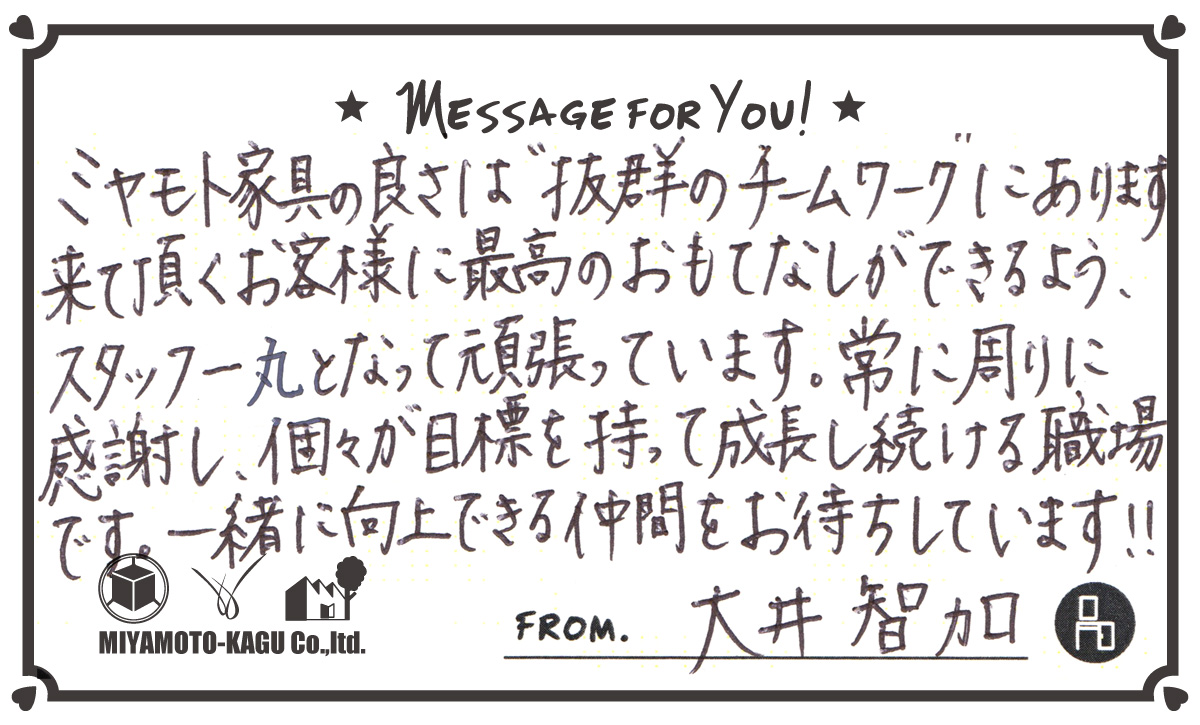 ★ MESSAGE FOR YOU! ★
ミヤモト家具の良さは"抜群のチームワーク"にあります
来て頂くお客様に最高のおもてなしができるよう、
スタッフ一丸となって頑張っています。常に周りに
感謝し、個々が目標を持って成長し続ける職場
です。一緒に向上できる仲間をお待ちしています!!
MIYAMOTO-KAGU Co.,ltd.
FROM. 大井 智加